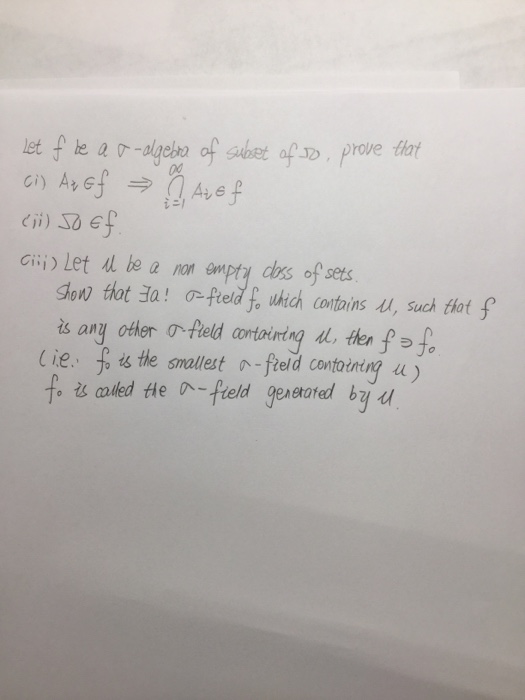 Let f be a σ-algebra of subset of Ω, prove that
(i) Ai ∈ f ⇒ ∞⋂i=1 Ai ∈ f
(ii) Ω ∈ f.
(iii) Let u be a non empty class of sets.
Show that ∃a! σ-field f₀ which contains u, such that f
is any other σ-field containing u, then f ⊃ f₀
(i.e. f₀ is the smallest σ-field containing u)
f₀ is called the σ-field generated by u.